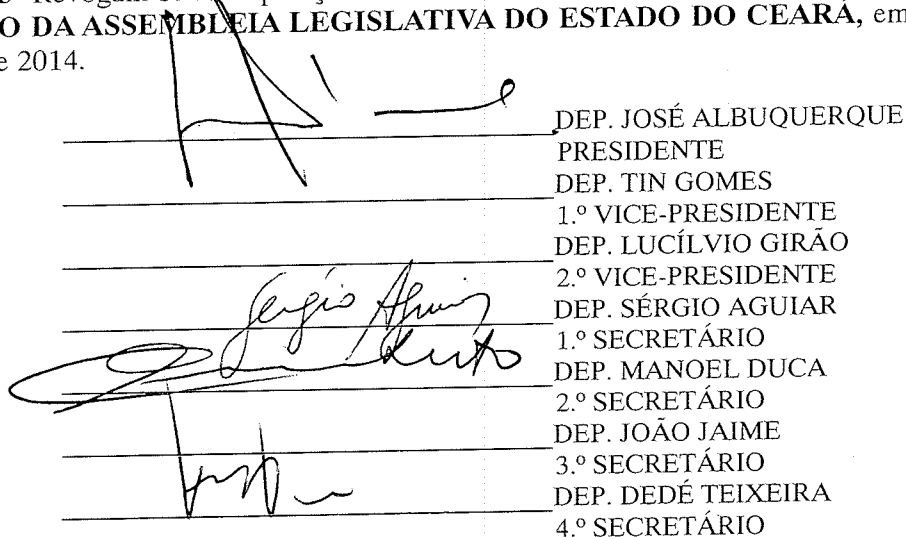 Revogam
O DA ASSEMBLEIA LEGISLATIVA DO ESTADO DO CEARÁ, em
e 2014.
DEP. JOSÉ ALBUQUERQUE
PRESIDENTE
DEP. TIN GOMES
1.º VICE-PRESIDENTE
DEP. LUCÍLVIO GIRÃO
2.º VICE-PRESIDENTE
Sérgio Aguiar
DEP. SÉRGIO AGUIAR
1.º SECRETÁRIO
DEP. MANOEL DUCA
2.º SECRETÁRIO
DEP. JOÃO JAIME
3.º SECRETÁRIO
DEP. DEDÉ TEIXEIRA
4.º SECRETÁRIO